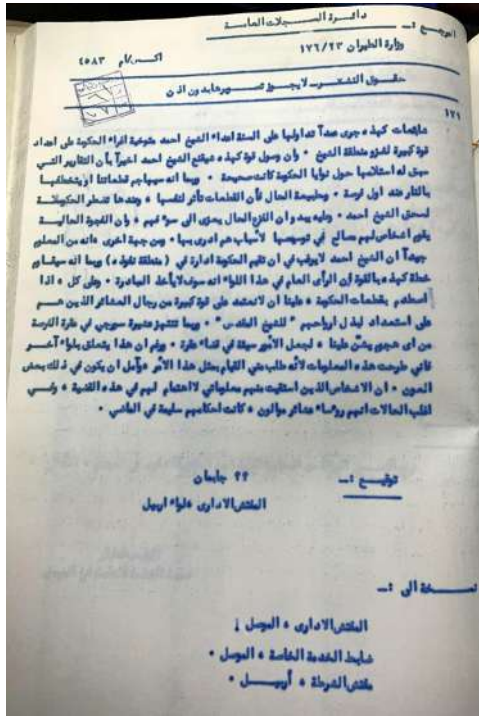 دائرة السجلات العامة
المرجع :ـ
وزارة الطيران ١٧٦/٢٣
اكس/ام ٤٥٨٣
حقوق النشر ـ لا يجوز تصويرها بدون اذن
١٧١
شائعات كهذه جرى عمداً تداولها على السنة اعداء الشيخ احمد متوخية اغراء الحكومة على اعداد
قوة كبيرة لغزو منطقة الشيخ ٠ وان وصول قوة كهذه ، سيقنع الشيخ احمد اخيراً بأن التقارير التي
سبق له استلامها حول نوايا الحكومة كانت صحيحة ٠ وربما انه سيهاجم قطعاتنا او يستقبلها
بالنار عند اول فرصة ٠ وبطبيعة الحال فأن القطعات تثأر لنفسها ٠ وعندها تضطر الحكومة
لسحق الشيخ احمد ٠ وعليه يبدو ان النزاع الحالي يعزى الى سوء فهم ٠ وان الفجوة الحالية
يقوم اشخاص لهم صالح في توسيعها لأسباب هم ادرى بها ٠ ومن جهة اخرى ، انه من المعلوم
جيداً ان الشيخ احمد لا يرغب في ان تقيم الحكومة ادارة في ( منطقة نفوذه ) وربما انه سيقاوم
خطة كهذه بالقوة إن الرأى العام في هذا اللواء انه سوف لا يأخذ المبادرة ٠ وعلى كل ، اذا
اصطدم بقطعات الحكومة ، علينا ان لا نعتمد على قوة كبيرة من رجال العشائر الذين هم
على استعداد لبذل ارواحهم " للشيخ المقدس " ٠ وربما تنتهز عشيرة سورجي في طرة الفرصة
من اى هجوم يشن علينا ٠ لجعل الأمور سيئة في قضاء طرة ٠ ورغم ان هذا يتعلق بلواء آخر
فاني طرحت هذه المعلومات لأنه طلب مني القيام بمثل هذا الأمر ، وآمل ان يكون في ذلك بعض
العون ٠ ان الاشخاص الذين استقيت منهم معلوماتي لا اهتمام لهم في هذه القضية ٠ وفي
اغلب الحالات انهم رؤساء عشائر موالون ٠ كانت احكامهم سليمة في الماضي ٠
توقيع :ـ
؟؟ جابمان
المفتش الادارى ، لواء اربيل
نسخة الى :ـ
المفتش الادارى ، الموصل
ضابط الخدمة الخاصة ، الموصل ٠
مفتش الشرطة ، أربيل ٠